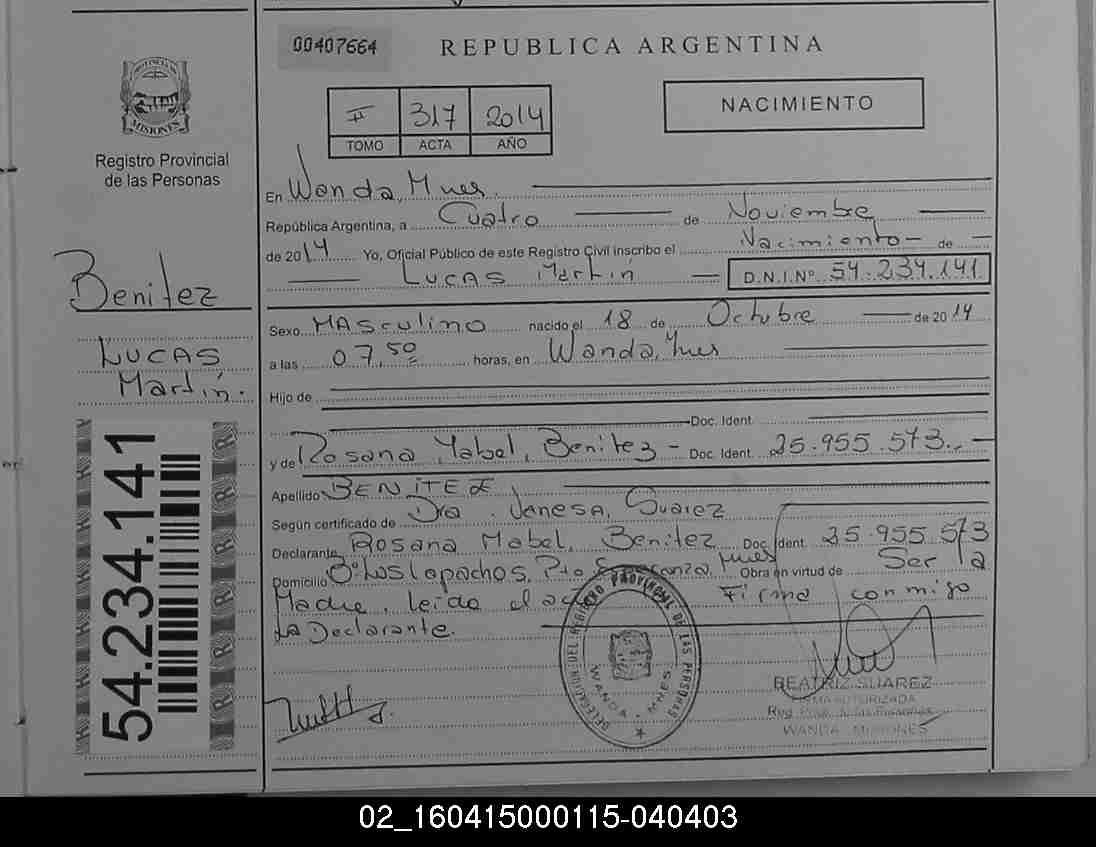 00407664
REPUBLICA ARGENTINA
PROVINCIA DE
MISIONES
Registro Provincial
de las Personas
II 317 2014
TOMO ACTA AÑO
NACIMIENTO
En Wanda, Mnes.
República Argentina, a Cuatro de Noviembre
de 2014 Yo, Oficial Público de este Registro Civil inscribo el Nacimiento de
Lucas Martín D.N.I.Nº 54.234.141
Benitez
Lucas
Martín.
54.234.141
Sexo Masculino nacido el 18 de Octubre de 2014
a las 07,50 horas, en Wanda, Mnes
Hijo de
Doc. Ident.
y de Rosana Mabel, Benitez Doc. Ident. 25.955.573.
Apellido BENITEZ
Según certificado de Dra. Vanesa, Suarez
Declarante Rosana Mabel, Benitez Doc. Ident. 25.955.573
Domicilio Bº Los Lapachos, Pto Esperanza, Mnes Obra en virtud de Ser la
Madre, leida el acta Firma conmigo
La Declarante.
DELEGACION DEL REGISTRO PROVINCIAL DE LAS PERSONAS
WANDA - MNES
BEATRIZ SUAREZ
FIRMA AUTORIZADA
Reg. Prov. de las Personas
WANDA - MISIONES
02_160415000115-040403